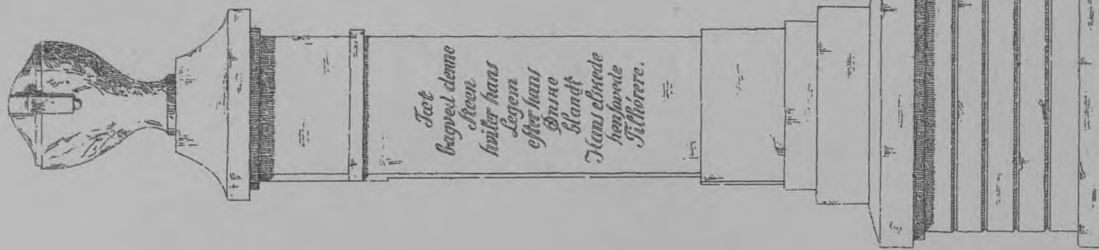 Tæt
bagved denne
Steen
hviler hans
Legem
efter hans
Ønske
blandt
Hans elskede
henfarede
Tilhörere.